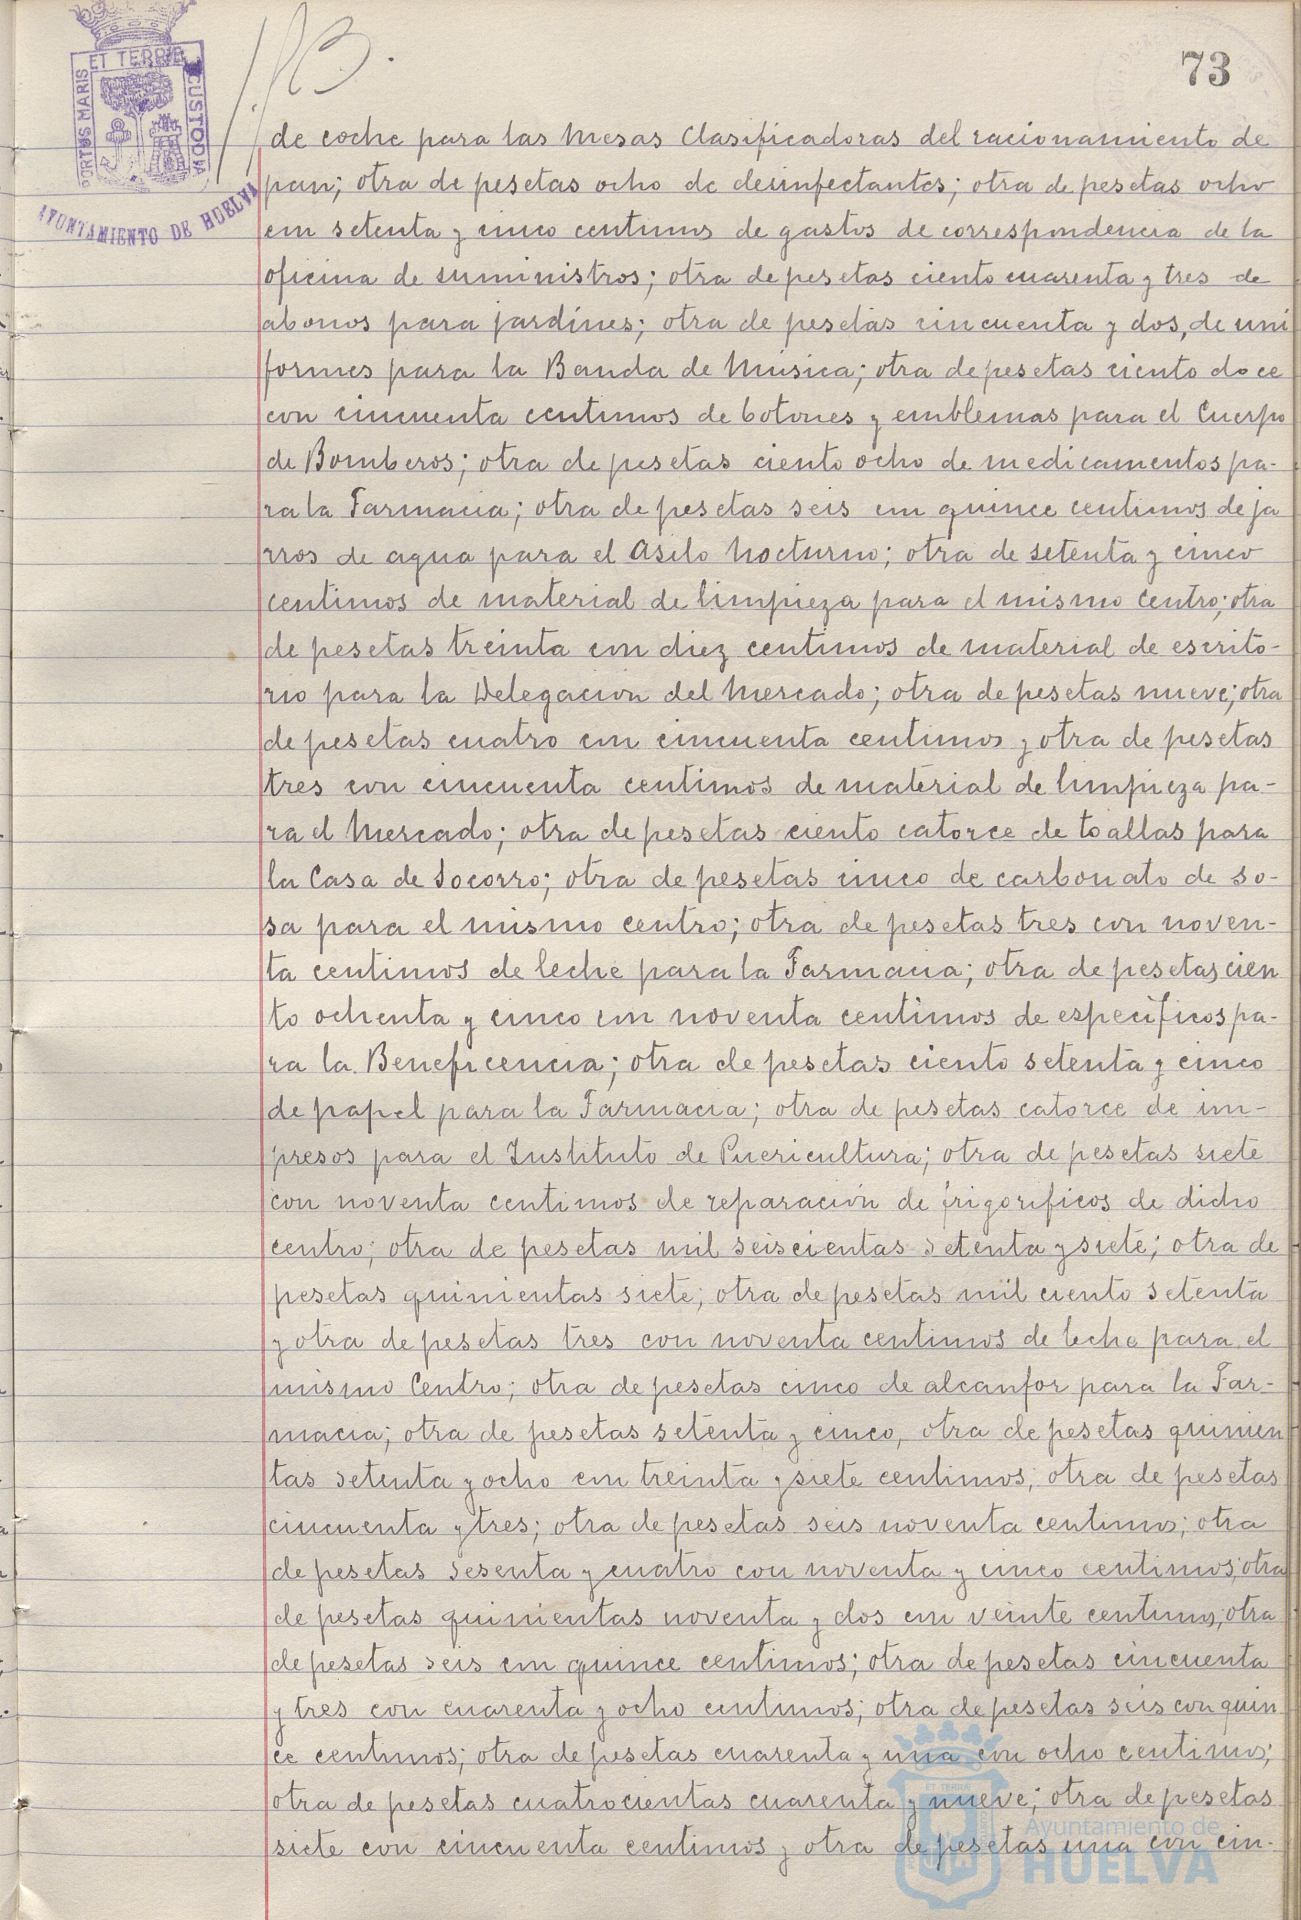 73
PORTUS MARIS ET TERRE CUSTODIA
AYUNTAMIENTO DE HUELVA
de coche para las Mesas Clasificadoras del racionamiento de
pan; otra de pesetas ocho de desinfectantes; otra de pesetas ocho
con setenta y cinco centimos de gastos de correspondencia de la
oficina de suministros; otra de pesetas ciento cuarenta y tres de
abonos para jardines; otra de pesetas cincuenta y dos, de uni
formes para la Banda de Música; otra de pesetas ciento doce
con cincuenta centimos de botones y emblemas para el Cuerpo
de Bomberos; otra de pesetas ciento ocho de medicamentos pa-
ra la Farmacia; otra de pesetas seis con quince centimos de ja
rros de agua para el Asilo Nocturno; otra de setenta y cinco
centimos de material de limpieza para el mismo centro; otra
de pesetas treinta con diez centimos de material de escrito-
rio para la Delegación del Mercado; otra de pesetas nueve; otra
de pesetas cuatro con cincuenta centimos y otra de pesetas
tres con cincuenta centimos de material de limpieza pa-
ra el Mercado; otra de pesetas ciento catorce de toallas para
la Casa de Socorro; otra de pesetas cinco de carbonato de so-
sa para el mismo centro; otra de pesetas tres con noven-
ta centimos de leche para la Farmacia; otra de pesetas cien
to ochenta y cinco con noventa centimos de específicos pa-
ra la Beneficencia; otra de pesetas ciento setenta y cinco
de papel para la Farmacia; otra de pesetas catorce de im-
presos para el Instituto de Puericultura; otra de pesetas siete
con noventa centimos de reparación de frigorificos de dicho
centro; otra de pesetas mil seiscientas setenta y siete; otra de
pesetas quinientas siete; otra de pesetas mil ciento setenta
y otra de pesetas tres con noventa centimos de leche para el
mismo Centro; otra de pesetas cinco de alcanfor para la Far-
macia; otra de pesetas setenta y cinco, otra de pesetas quinien
tas setenta y ocho con treinta y siete centimos; otra de pesetas
cincuenta y tres; otra de pesetas seis noventa centimos; otra
de pesetas sesenta y cuatro con noventa y cinco centimos; otra
de pesetas quinientas noventa y dos con veinte centimos; otra
de pesetas seis con quince centimos; otra de pesetas cincuenta
y tres con cuarenta y ocho centimos; otra de pesetas seis con quin
ce centimos; otra de pesetas cuarenta y una con ocho centimos;
otra de pesetas cuatrocientas cuarenta y nueve; otra de pesetas
siete con cincuenta centimos y otra de pesetas una con cin-
Ayuntamiento de
HUELVA